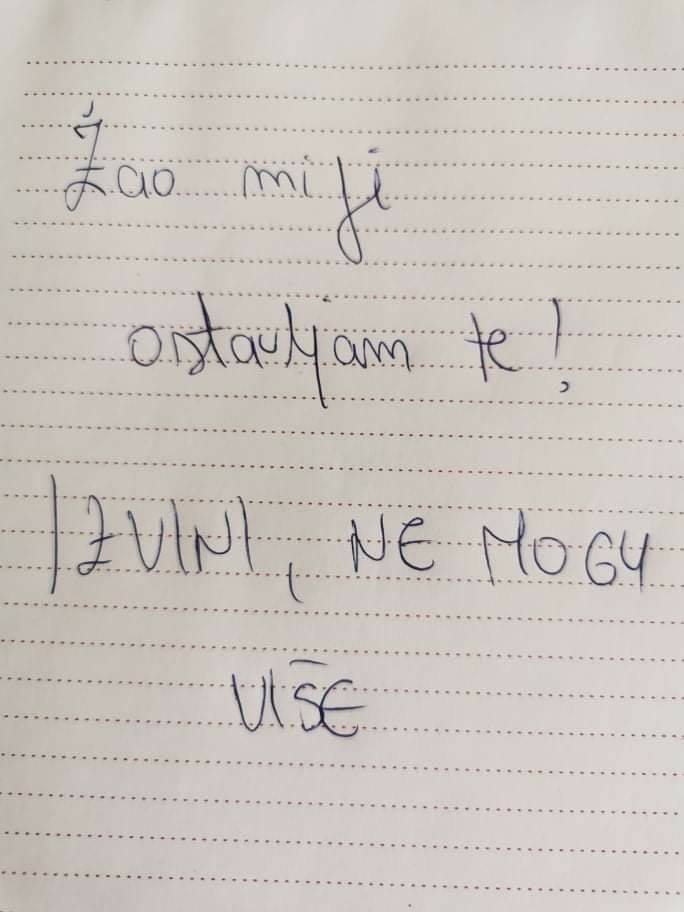 Žao mi ji
ostavljam te!
IZVINI, NE MOGU
VIŠE